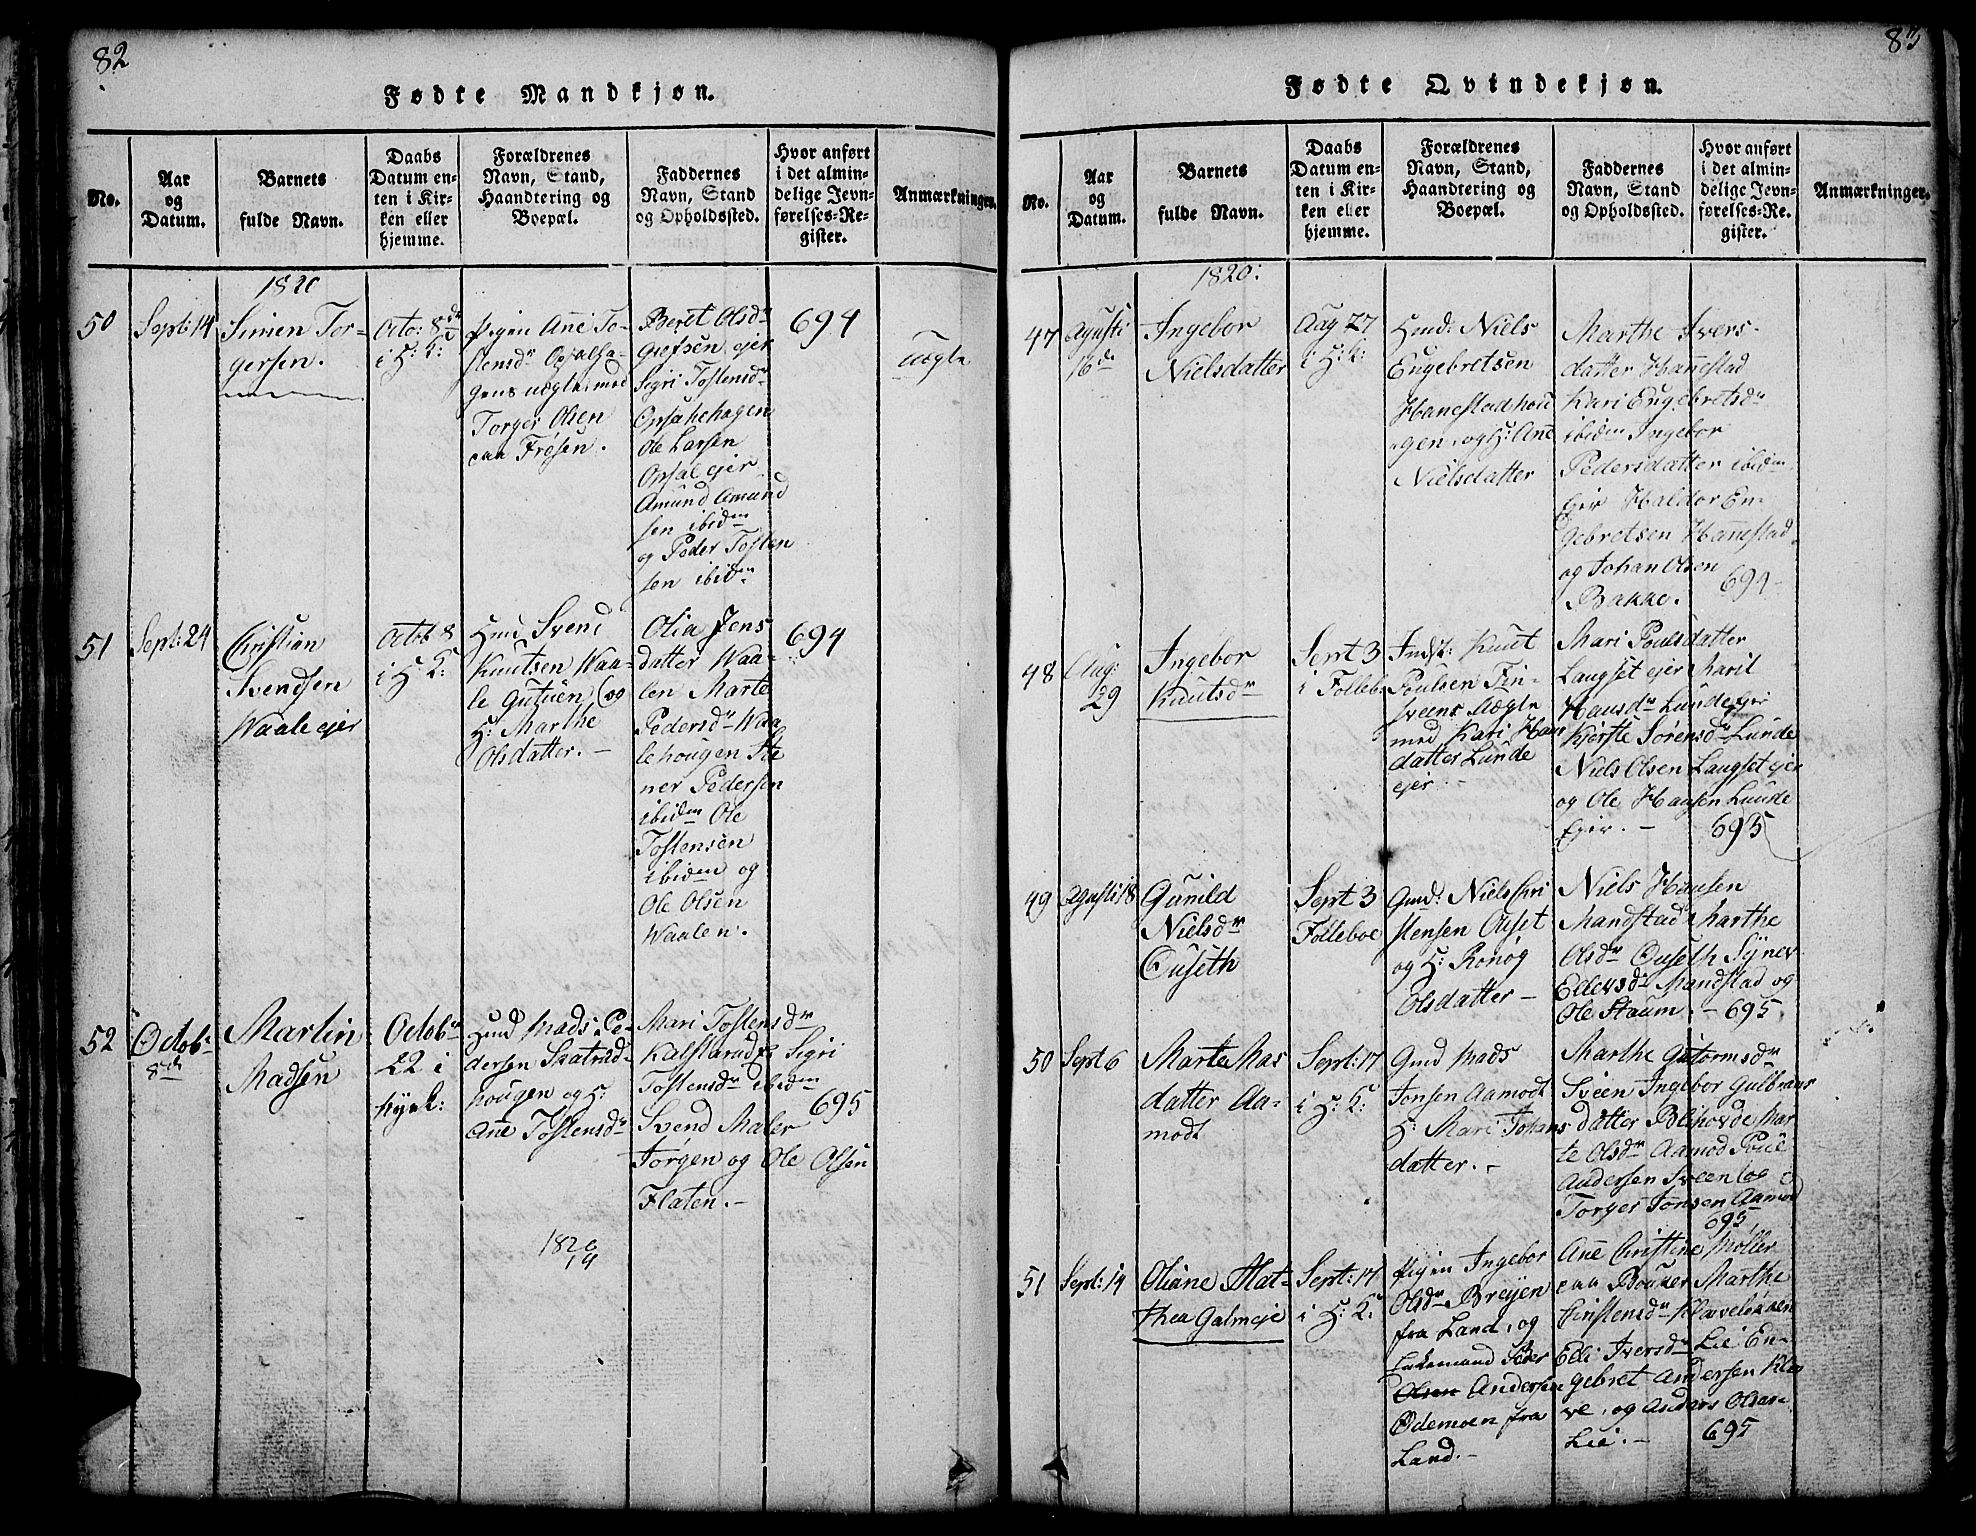 82
Fødte Mandkjøn.
No.
Aar
og
Datum.
Barnets
fulde Navn.
Daabs
Datum en-
ten i Kir-
ken eller
hjemme.
Forældrenes
Navn, Stand,
Haandtering og
Boepæl.
Faddernes
Navn, Stand
og Opholdssted.
Hvor anført
i det almin-
delige Jevn-
førelses-Re-
gister.
Anmærkninger.
1820
50
Sept: 14
Simen Tor-
gersen.
Octo: 8de
i H: K:
Pigen Ane To-
stensdr Opsalha-
gens uægte, med
Torger Olsen
Frøsen.
Beret Olsdr
ejer
Sigri Tostensdr
Opsahlehagen
Ole Larsen
Opsal ejer
Amund Amund
sen ibidm
og Peder Tosten
sen ibidm
694
uægte
51
Sept: 24
Christian
Svendsen
Waale ejer
Octob 8
i H K:
Hmd Svend
Knutsen Waa-
le og
H: Marthe
Olsdatter. -
Olia Jens
datter Waa-
len Marte
Pedersdr Waa-
lehougen Ste
ner Pedersen
ibidm Ole
Tostensen
ibidm og
Ole Olsen
Waalen.
694
52
Octobr
8de
Martin
Madsen
Octobr
22 i
Kirk:
Hmd Mads Pe-
dersen
hougen og H:
Ane Tostensdr
Mari Tostensdr
Sigri
Tostensdr ibidm
Svend Maler
Jørgen og Ole Olsen
Flaten. -
695
1820
14
83
Fødte Qvindekjøn.
No.
Aar
og
Datum.
Barnets
fulde Navn.
Daabs
Datum en-
ten i Kir-
ken eller
hjemme.
Forældrenes
Navn, Stand,
Haandtering og
Boepæl.
Faddernes
Navn, Stand
og Opholdssted.
Hvor anført
i det almin-
delige Jevn-
førelses-Re-
gister.
Anmærkninger.
1820:
47
Agusti
16de
Ingebor
Nielsdatter
Aug 27
i H: K:
Hmd: Niels
Engebretsen
Hanestadhou
gen, og H: Ane
Nielsdatter
Marthe Ivers-
datter Hanestad
Kari Engebretsdr
ibidm Ingebor
Pedersdatter ibidm
Ejer Haldor En-
gebretsen Hanestad
og Johan Olsen
Bakke.
694
48
Aug:
29
Ingebor
Knutsdr
Sept 3
i Folleb.
Indst: Knut
Poulsen Tin-
sveens uægte
med Kari Han
datter Lunde
ejer. -
Mari Poulsdatter
Laugset ejer Marit
Hansdr Lunde ejer
Kjerste Sørensdr Lunde
Niels Olsen Laugset ejer
og Ole Hansen Lunde
Ejer. -
695
49
Agusti 18
Gunild
Nielsdr
Ouseth
Sept 3
Folleboe
Gmd: Niels Chri
stensen Ouset
og H: Rønøg
Olsdatter -
Niels Hansen
Mandstad Marthe
Olsdr Ouseth Synev
Ellevsdr Mandstad og
Ole Staum. - 695.
50
Sept 6
Marte Mas
datter Aa-
modt
Sept: 17
i H: K:
Gmd Mads
Jonsen Aamodt
H: Mari Johans
datter. -
Marthe Gutormsdr
Sveen Ingebor Gulbrans
datter Blihovde Mar
te Olsdr Aamod Poul
Andersen Sveen og
Torger Jonsen Aamod
695
51
Sept: 14
Oliane Mat-
thea Galmeje
Sept: 17
i H: K:
Pigen Ingebor
Olsdr Breyen
fra Land, og
Peder
Olsen Andersen
Ødemoen fra
Land. -
Ane Christine Møller
Marthe
Christensdr
Elli Iversdr Lie En-
gebret Andersen Klo
ve, og Anders Olsen
Lie. -
695